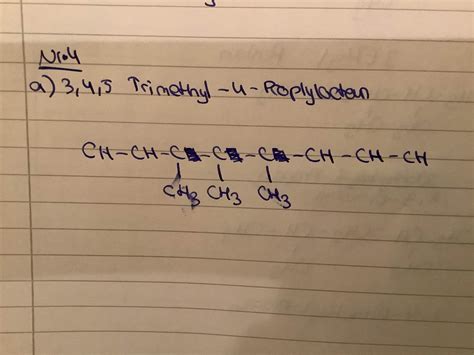 Nr.4
a) 3,4,5 Trimethyl-4-Proplyloctan
CH-CH-C-C-C-CH-CH-CH
CH3 CH3 CH3